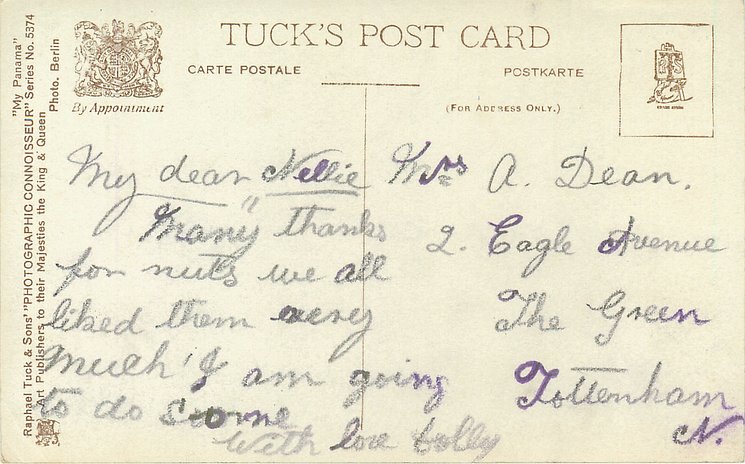 "My Panama"
Raphael Tuck & Sons' "PHOTOGRAPHIC CONNOISSEUR" Series No. 5374
Art Publishers to their Majesties the King & Queen
Photo. Berlin
By Appointment
TUCK'S POST CARD
CARTE POSTALE
POSTKARTE
(FOR ADDRESS ONLY.)
My dear Nellie
Many thanks
for nuts we all
liked them very
much I am going
to do some
With love Lolly
Mrs A. Dean.
2. Eagle Avenue
The Green
Tottenham
N.